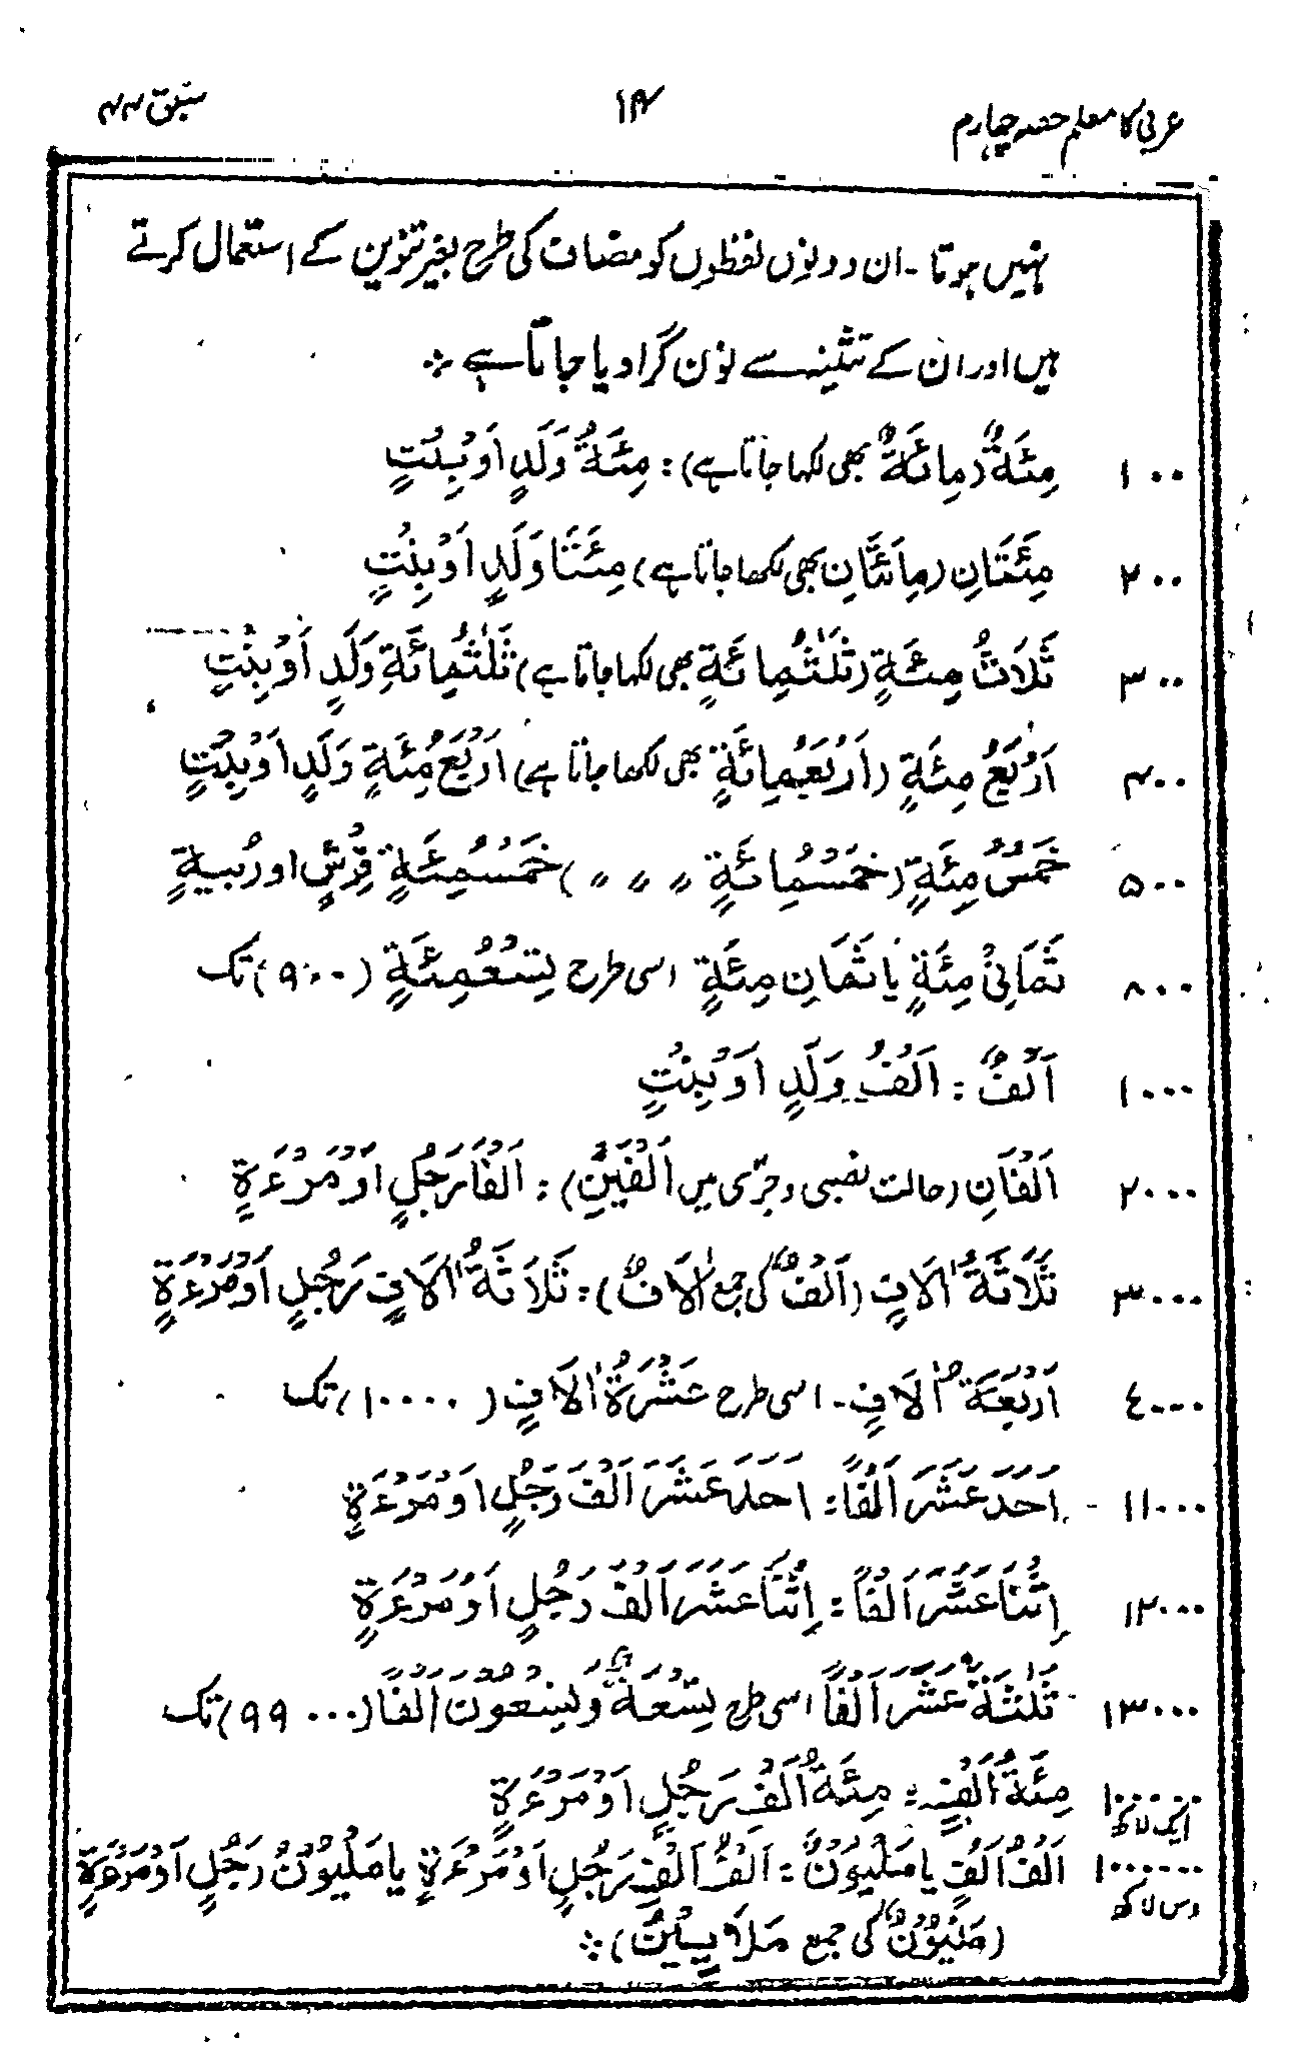 عربی کا معلم حصہ چہارم ۱۴ سبق ۴۴
نہیں ہوتا۔ ان دونوں لفظوں کو مضاف کی طرح بغیر تنوین کے استعمال کرتے
ہیں اور ان کے تثنیہ سے نون گرا دیا جاتا ہے ؞
۱۰۰ مِئَةٌ (مِائَةٌ بھی لکھا جاتا ہے): مِئَةُ وَلَدٍ اَوْ بِنْتٍ
۲۰۰ مِئَتَانِ (مِائَتَانِ بھی لکھا جاتا ہے) مِئَتَا وَلَدٍ اَوْ بِنْتٍ
۳۰۰ ثَلَاثُ مِئَةٍ (ثَلٰثُمِائَةٍ بھی لکھا جاتا ہے) ثَلٰثُمِائَةِ وَلَدٍ اَوْ بِنْتٍ
۴۰۰ اَرْبَعُ مِئَةٍ (اَرْبَعُمِائَةٍ بھی لکھا جاتا ہے) اَرْبَعُ مِئَةِ وَلَدٍ اَوْ بِنْتٍ
۵۰۰ خَمْسُ مِئَةٍ (خَمْسُمِائَةٍ 〃 〃 〃) خَمْسُمِئَةِ قِرْشٍ او رُبيةٍ
۸۰۰ ثَمَانِيْ مِئَةٍ یا ثَمَانِ مِئَةٍ اسی طرح تِسْعُمِئَةٍ (۹۰۰) تک
۱۰۰۰ اَلْفٌ : اَلْفُ وَلَدٍ اَوْ بِنْتٍ
۲۰۰۰ اَلْفَانِ (حالت نصبی و جرّی میں اَلْفَيْنِ) : اَلْفَا رَجُلٍ اَوْ مَرْءَةٍ
۳۰۰۰ ثَلَاثَةُ اٰلَافٍ (اَلْفٌ کی جمع اٰلَافٌ) : ثَلَاثَةُ اٰلَافِ رَجُلٍ اَوْ مَرْءَةٍ
٤۰۰۰ اَرْبَعَةُ اٰلَافٍ۔ اسی طرح عَشْرَةُ اٰلَافٍ (۱۰۰۰۰) تک
۱۱۰۰۰ اَحَدَ عَشَرَ اَلْفًا : اَحَدَ عَشَرَ اَلْفَ رَجُلٍ اَوْ مَرْءَةٍ
۱۲۰۰۰ اِثْنَا عَشَرَ اَلْفًا : اِثْنَا عَشَرَ اَلْفَ رَجُلٍ اَوْ مَرْءَةٍ
۱۳۰۰۰ ثَلٰثَةَ عَشَرَ اَلْفًا اسی طرح تِسْعَةٌ وَتِسْعُوْنَ اَلْفًا (۹۹۰۰۰) تک
۱۰۰۰۰۰ ایک لاکھ مِئَةُ اَلْفٍ : مِئَةُ اَلْفِ رَجُلٍ اَوْ مَرْءَةٍ
۱۰۰۰۰۰۰ دس لاکھ اَلْفُ اَلْفٍ یا مَلْيُوْنٌ : اَلْفُ اَلْفِ رَجُلٍ اَوْ مَرْءَةٍ یا مَلْيُوْنُ رَجُلٍ اَوْ مَرْءَةٍ
(مَلْيُوْنٌ کی جمع مَلَايِيْنُ) ؞